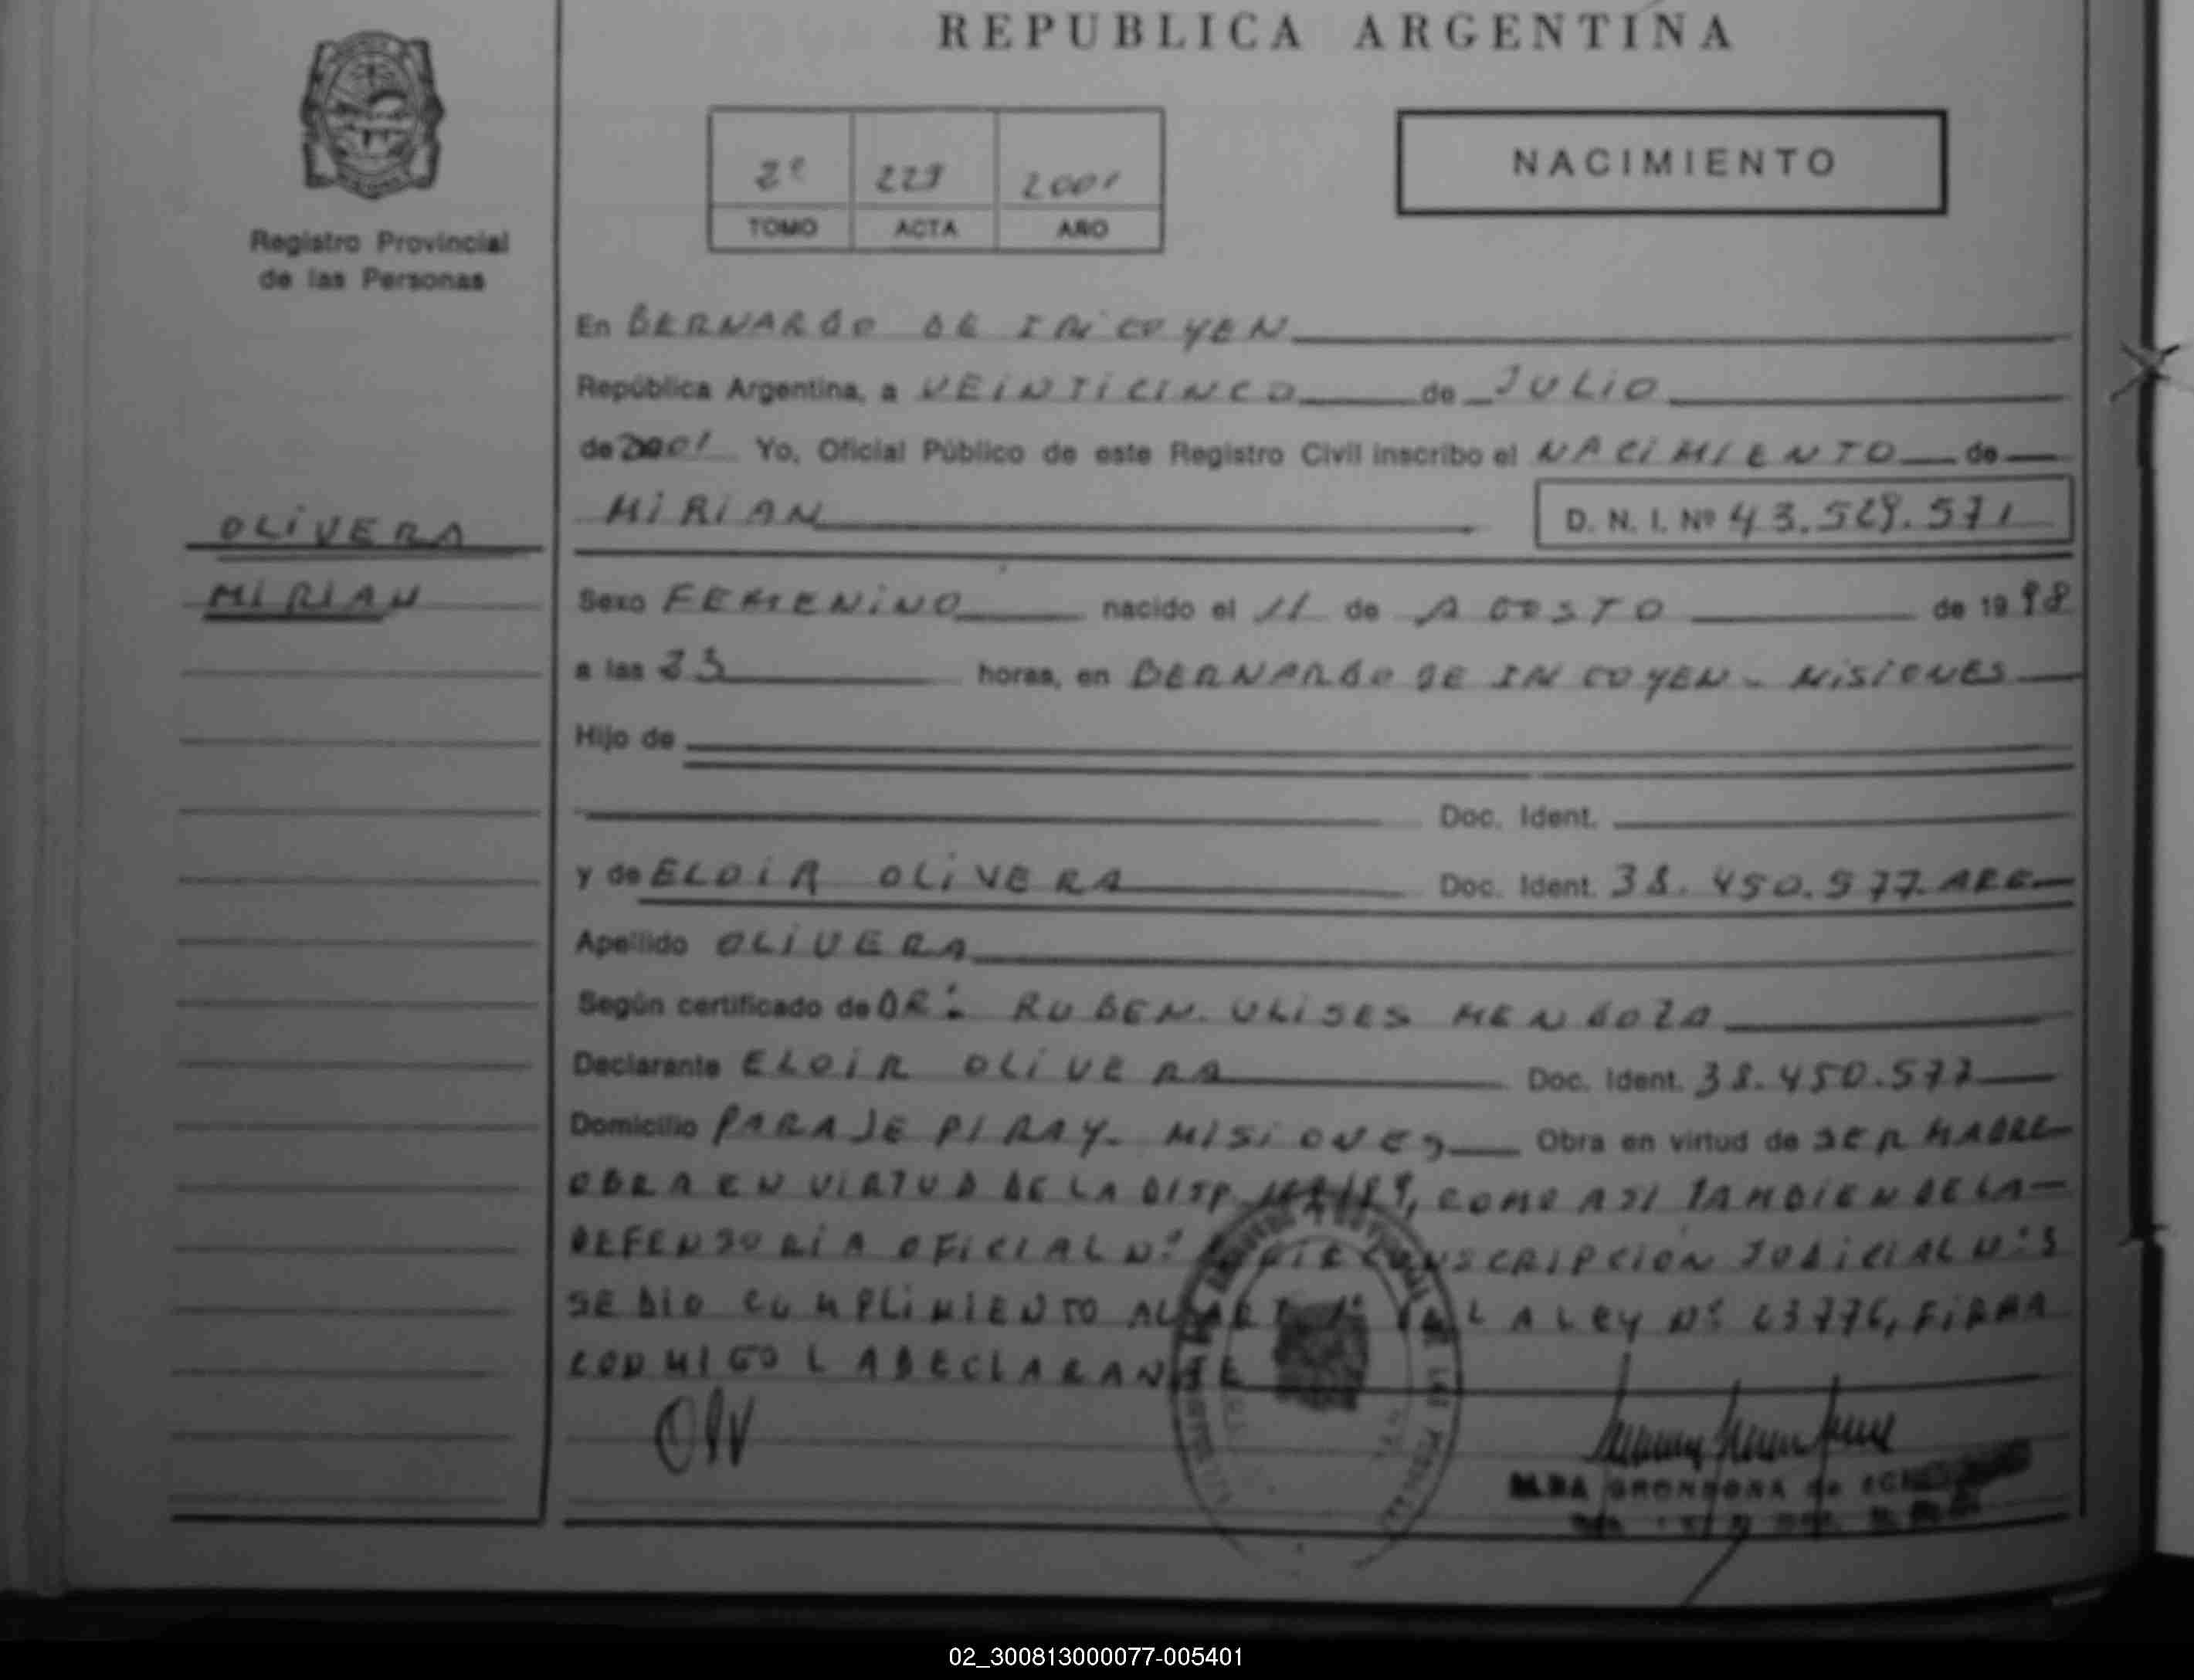 REPUBLICA ARGENTINA
2º 229 2001
TOMO ACTA AÑO
NACIMIENTO
Registro Provincial
de las Personas
En BERNARDO DE IRIGOYEN
República Argentina, a VEINTICINCO de JULIO
de 2001 Yo, Oficial Público de este Registro Civil inscribo el NACIMIENTO de
MIRIAN D. N. I. Nº 43.529.571
OLIVERA
MIRIAN
Sexo FEMENINO nacido el 11 de AGOSTO de 1998
a las 23 horas, en BERNARDO DE IRIGOYEN - MISIONES
Hijo de
Doc. Ident.
y de ELOIR OLIVERA Doc. Ident. 38.450.577 ARG
Apellido OLIVERA
Según certificado de DR: RUBEN ULISES MENDOZA
Declarante ELOIR OLIVERA Doc. Ident. 38.450.577
Domicilio PARAJE PIRAY - MISIONES Obra en virtud de SER MADRE
OBRA EN VIRTUD DE LA DISP. COMO ASI TAMBIEN DE LA
DEFENSORIA OFICIAL Nº CIRCUNSCRIPCION JUDICIAL Nº 3
SE DIO CUMPLIMIENTO AL ART DE LA LEY Nº 23776, FIRMA
CONMIGO LA DECLARANTE
Oliv
ALBA GRONDONA de
02_300813000077-005401